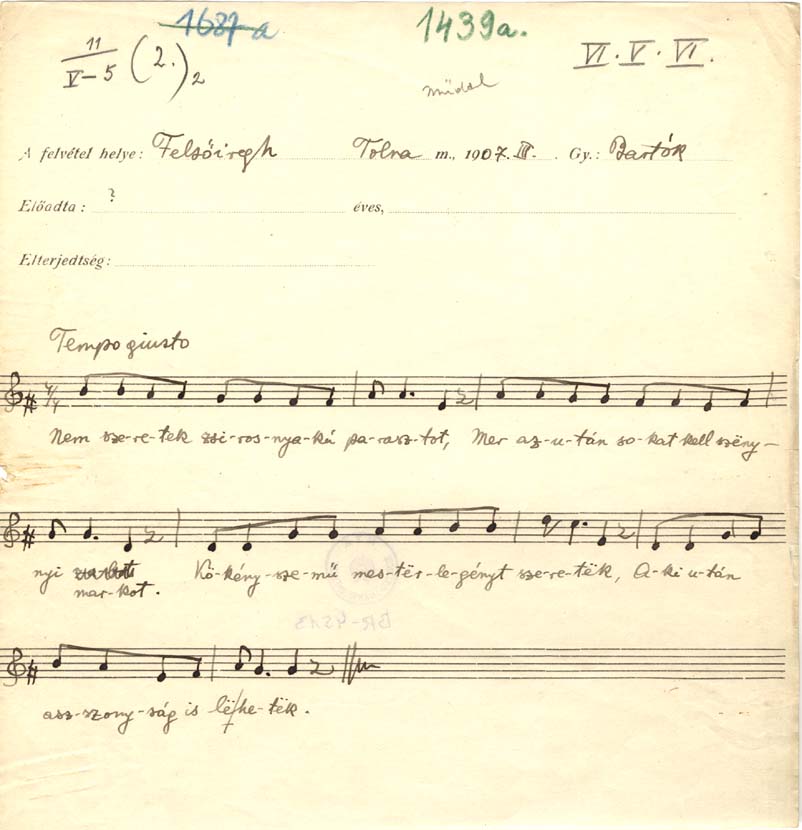 1687a 1439a.
11/V-5 (2.)2 VI. V. VI.
műdal
A felvétel helye: Felsőiregh Tolna m., 1907. III. Gy.: Bartók
Előadta: ? éves,
Elterjedtség:
Tempo giusto
4/4
Nem sze-re-tek zsi-ros-nya-kú pa-rasz-tot, Mer az-u-tán so-kat kell szëny-
nyi Kö-kény-sze-mű mes-tër-le-gényt sze-re-tëk, A-ki u-tán
mar-kot.
BR-4513
asz-szony-ság is lë-he-tëk.